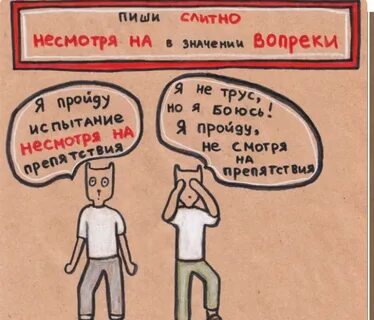 пиши слитно
несмотря на в значении вопреки
Я пройду
испытание
несмотря на
препятствия
Я не трус,
но я боюсь!
Я пройду,
не смотря
на
препятствия